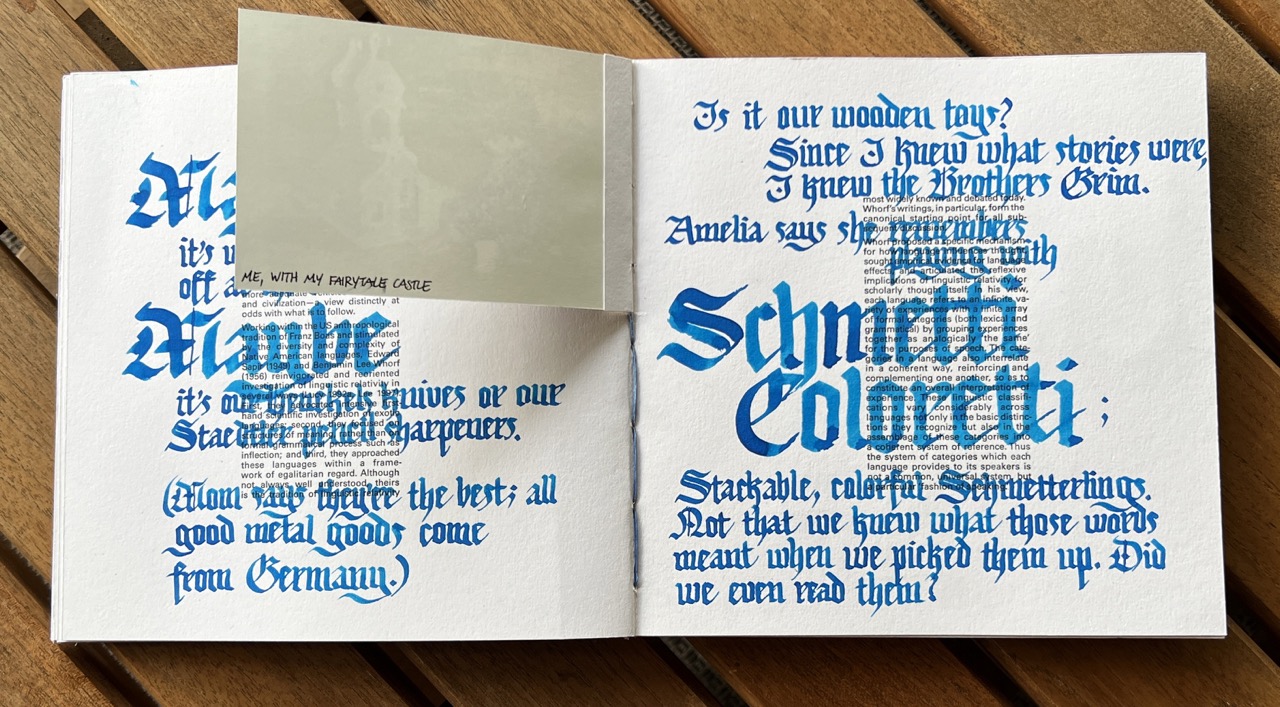 ME, WITH MY FAIRYTALE CASTLE
Ma
it's
off a
Maybe
it's our Henckels knives or our
Staedtler pencil sharpeners.
(Mom says they're the best; all
good metal goods come
from Germany.)
and civilization—a view distinctly at
odds with what is to follow.
Working with the US anthropological
tradition of Franz Boas and stimulated
by the diversity and complexity of
Native American languages, Edward
Sapir (1949) and Benjamin Lee Whorf
(1956) reinvigorated and reoriented
investigation of linguistic relativity in
hand scientific investigation of exotic
formal grammatical process such as
inflection; and third, they approached
these languages within a frame-
work of egalitarian regard. Although
not always well understood, theirs
is the tradition of linguistic relativity
Is it our wooden toys?
Since I knew what stories were,
I knew the Brothers Grim.
Amelia says she remembers
playing with
Schmetti
Coloretti;
Stackable, colorful Schmetterlings.
Not that we knew what those words
meant when we picked them up. Did
we even read them?
most widely known and debated today.
Whorf's writings, in particular, form the
canonical starting point for all sub-
sequent discussion.
Whorf proposed a specific mechanism
for how language influences thought,
sought empirical evidence for language
effects, and articulated the reflexive
implications of linguistic relativity for
scholarly thought itself. In his view,
each language refers to an infinite va-
riety of experiences with a finite array
of formal categories (both lexical and
grammatical) by grouping experiences
together as analogically 'the same'
for the purposes of speech. The cate-
gories in a language also interrelate
in a coherent way, reinforcing and
complementing one another, so as to
constitute an overall interpretation of
experience. These linguistic classifi-
cations vary considerably across
languages not only in the basic distinc-
tions they recognize but also in the
assemblage of these categories into
a coherent system of reference. Thus
the system of categories which each
language provides to its speakers is
not a common, universal system, but
a particular fashion of speaking.